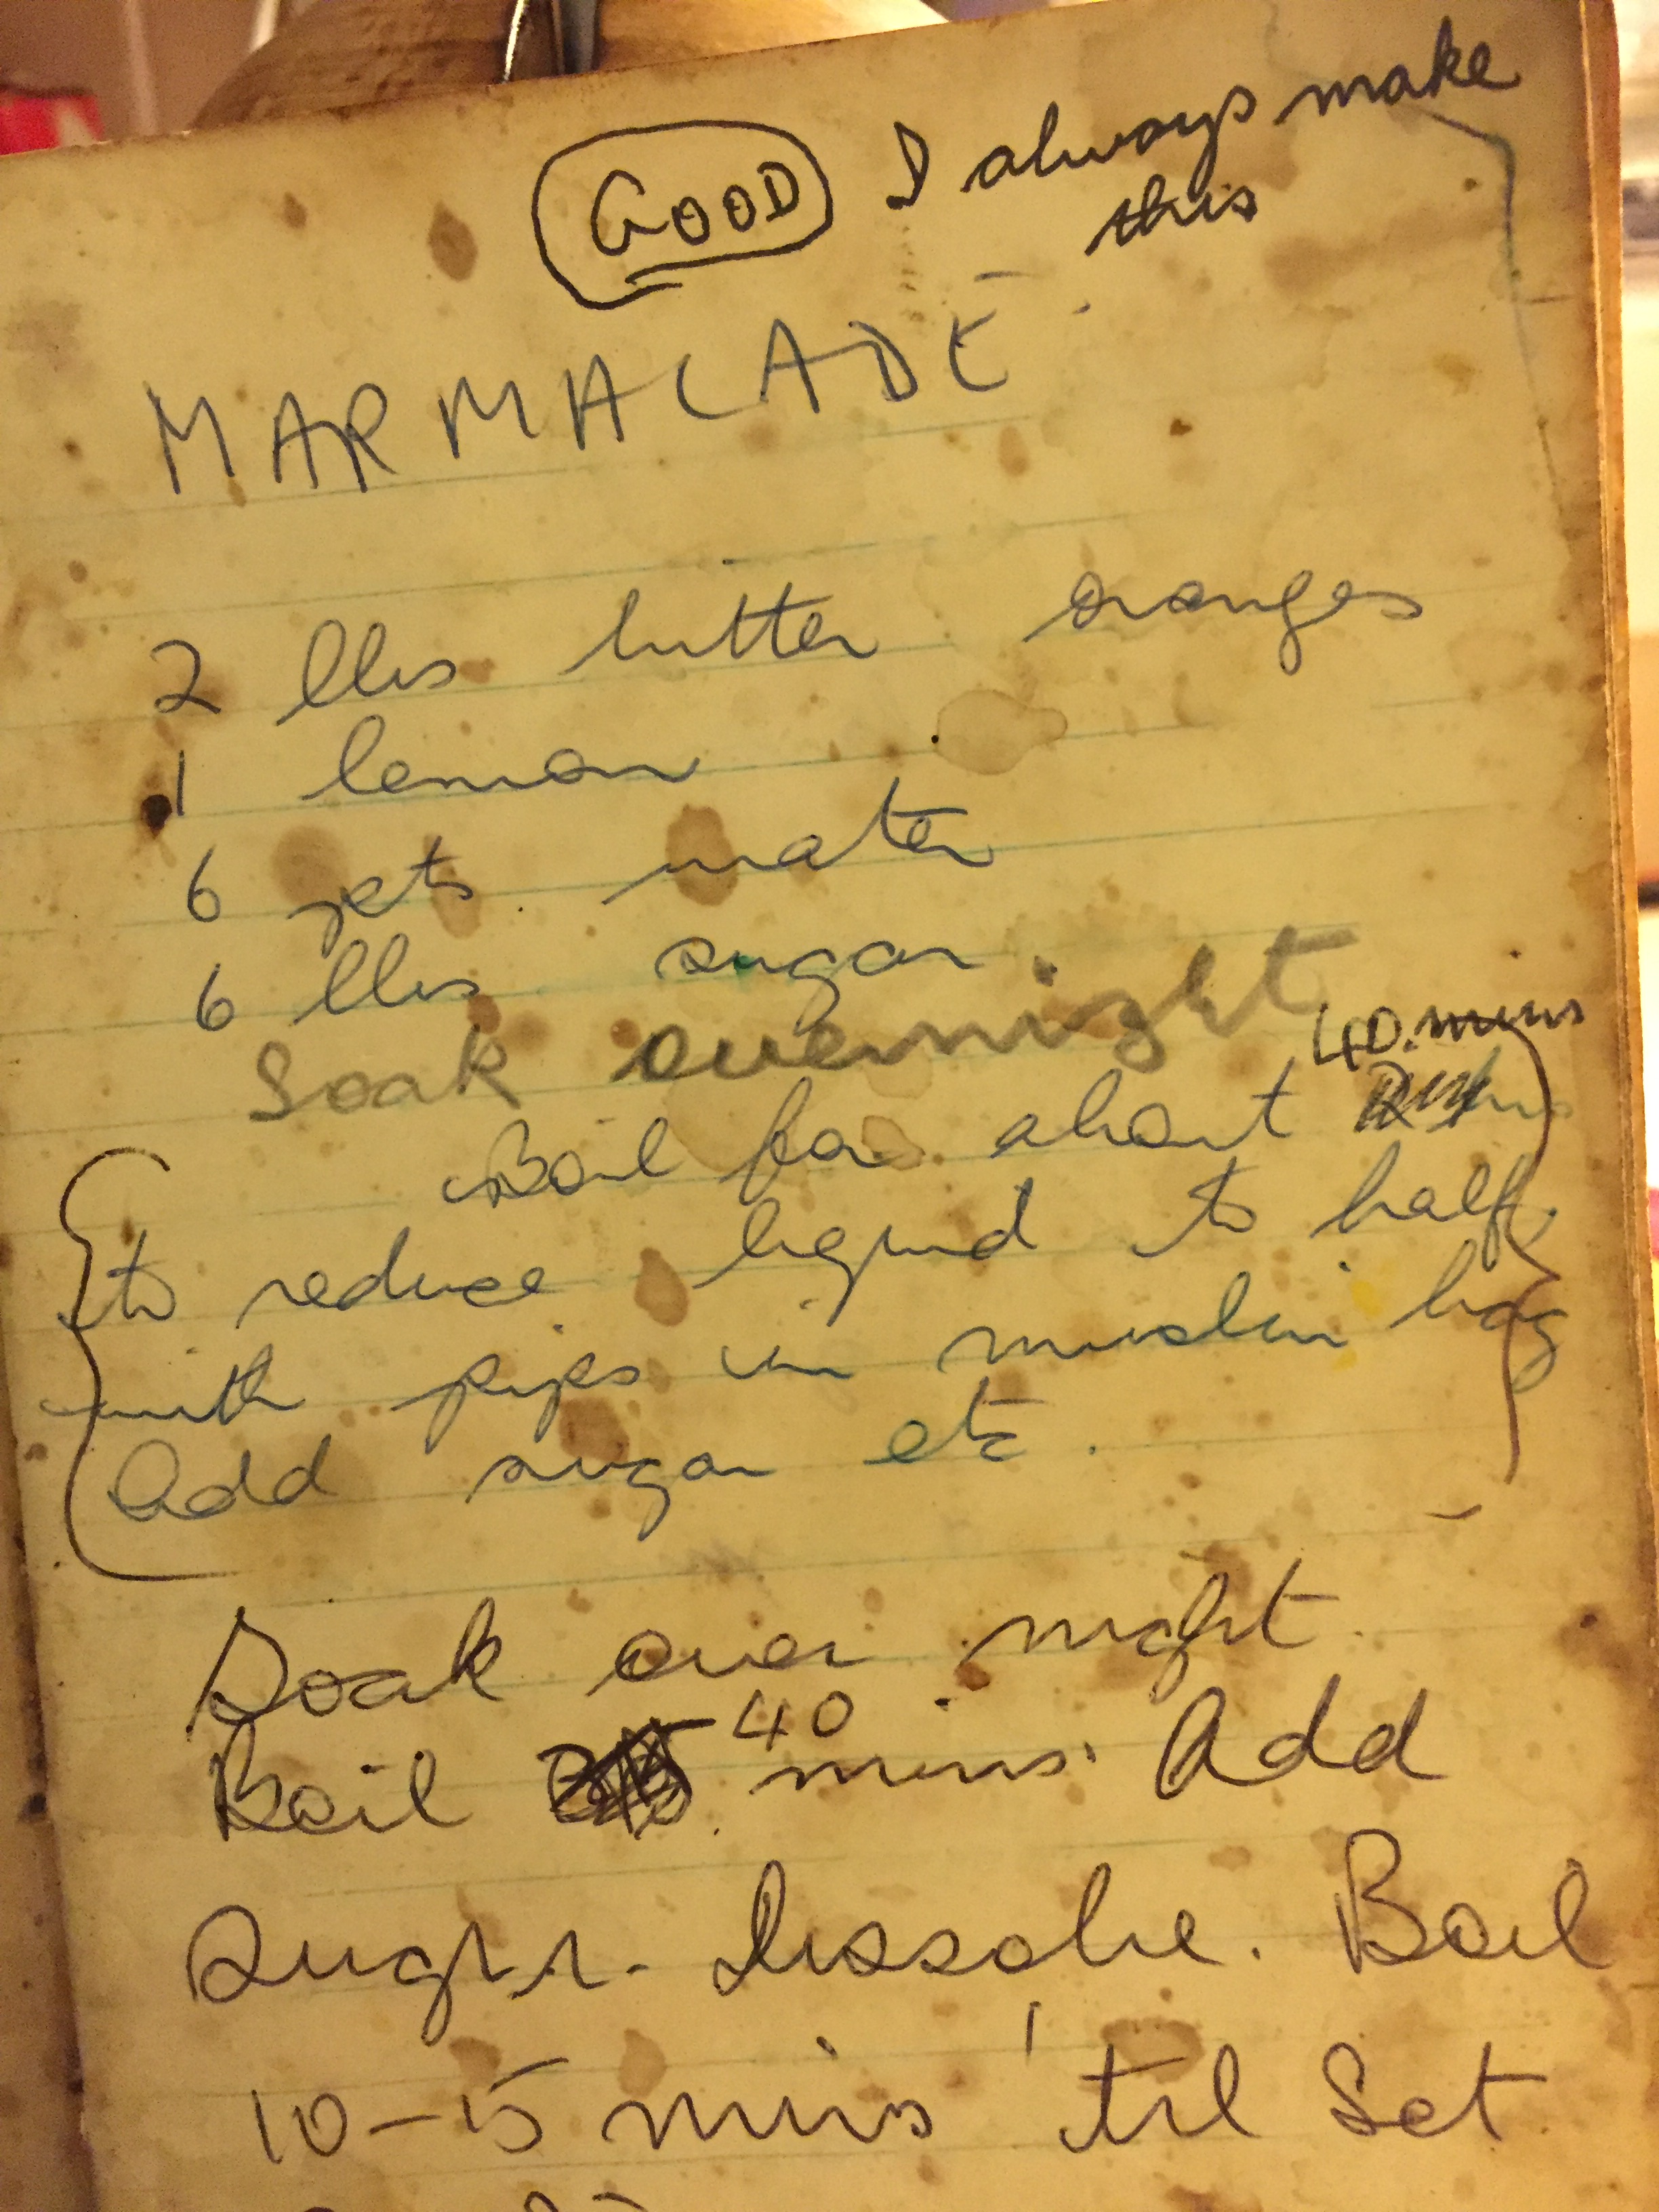 GOOD I always make
this
MARMALADE
2 lbs bitter oranges
1 lemon
6 pts. water
6 lbs sugar.
Soak overnight
40 mins
Boil for about
to reduce liquid to half.
with pips in muslin bag
Add sugar etc.
Soak over night.
Boil 40 mins. Add
Sugar. Dissolve. Boil
10-15 mins 'til Set